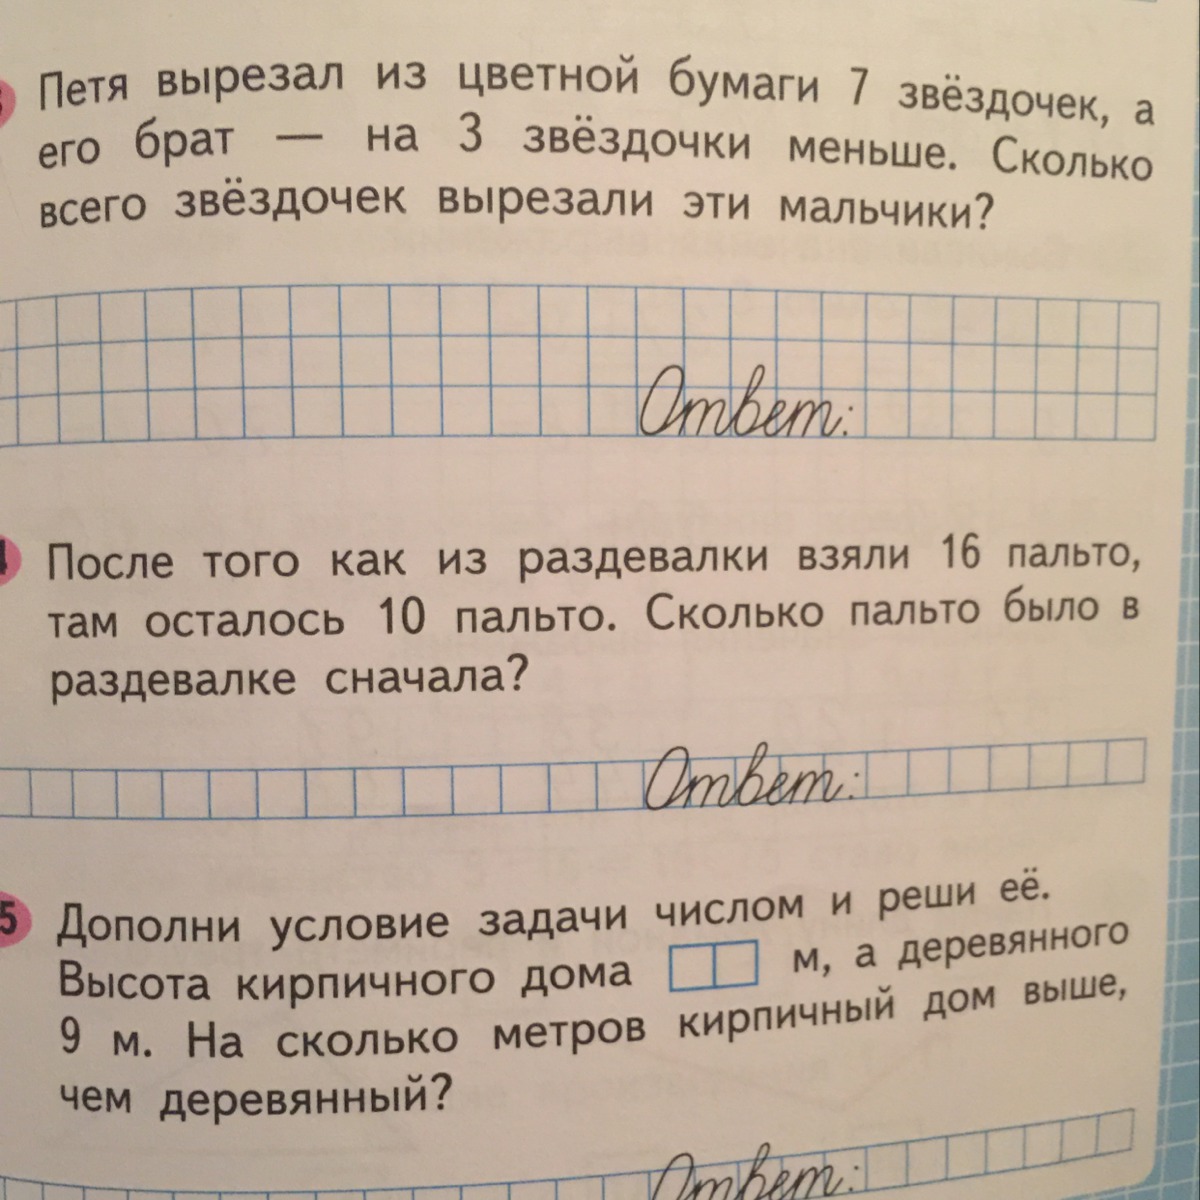 Петя вырезал из цветной бумаги 7 звёздочек, а
его брат — на 3 звёздочки меньше. Сколько
всего звёздочек вырезали эти мальчики?
Ответ:
После того как из раздевалки взяли 16 пальто,
там осталось 10 пальто. Сколько пальто было в
раздевалке сначала?
Ответ:
5 Дополни условие задачи числом и реши её.
Высота кирпичного дома м, а деревянного
9 м. На сколько метров кирпичный дом выше,
чем деревянный?
Ответ: